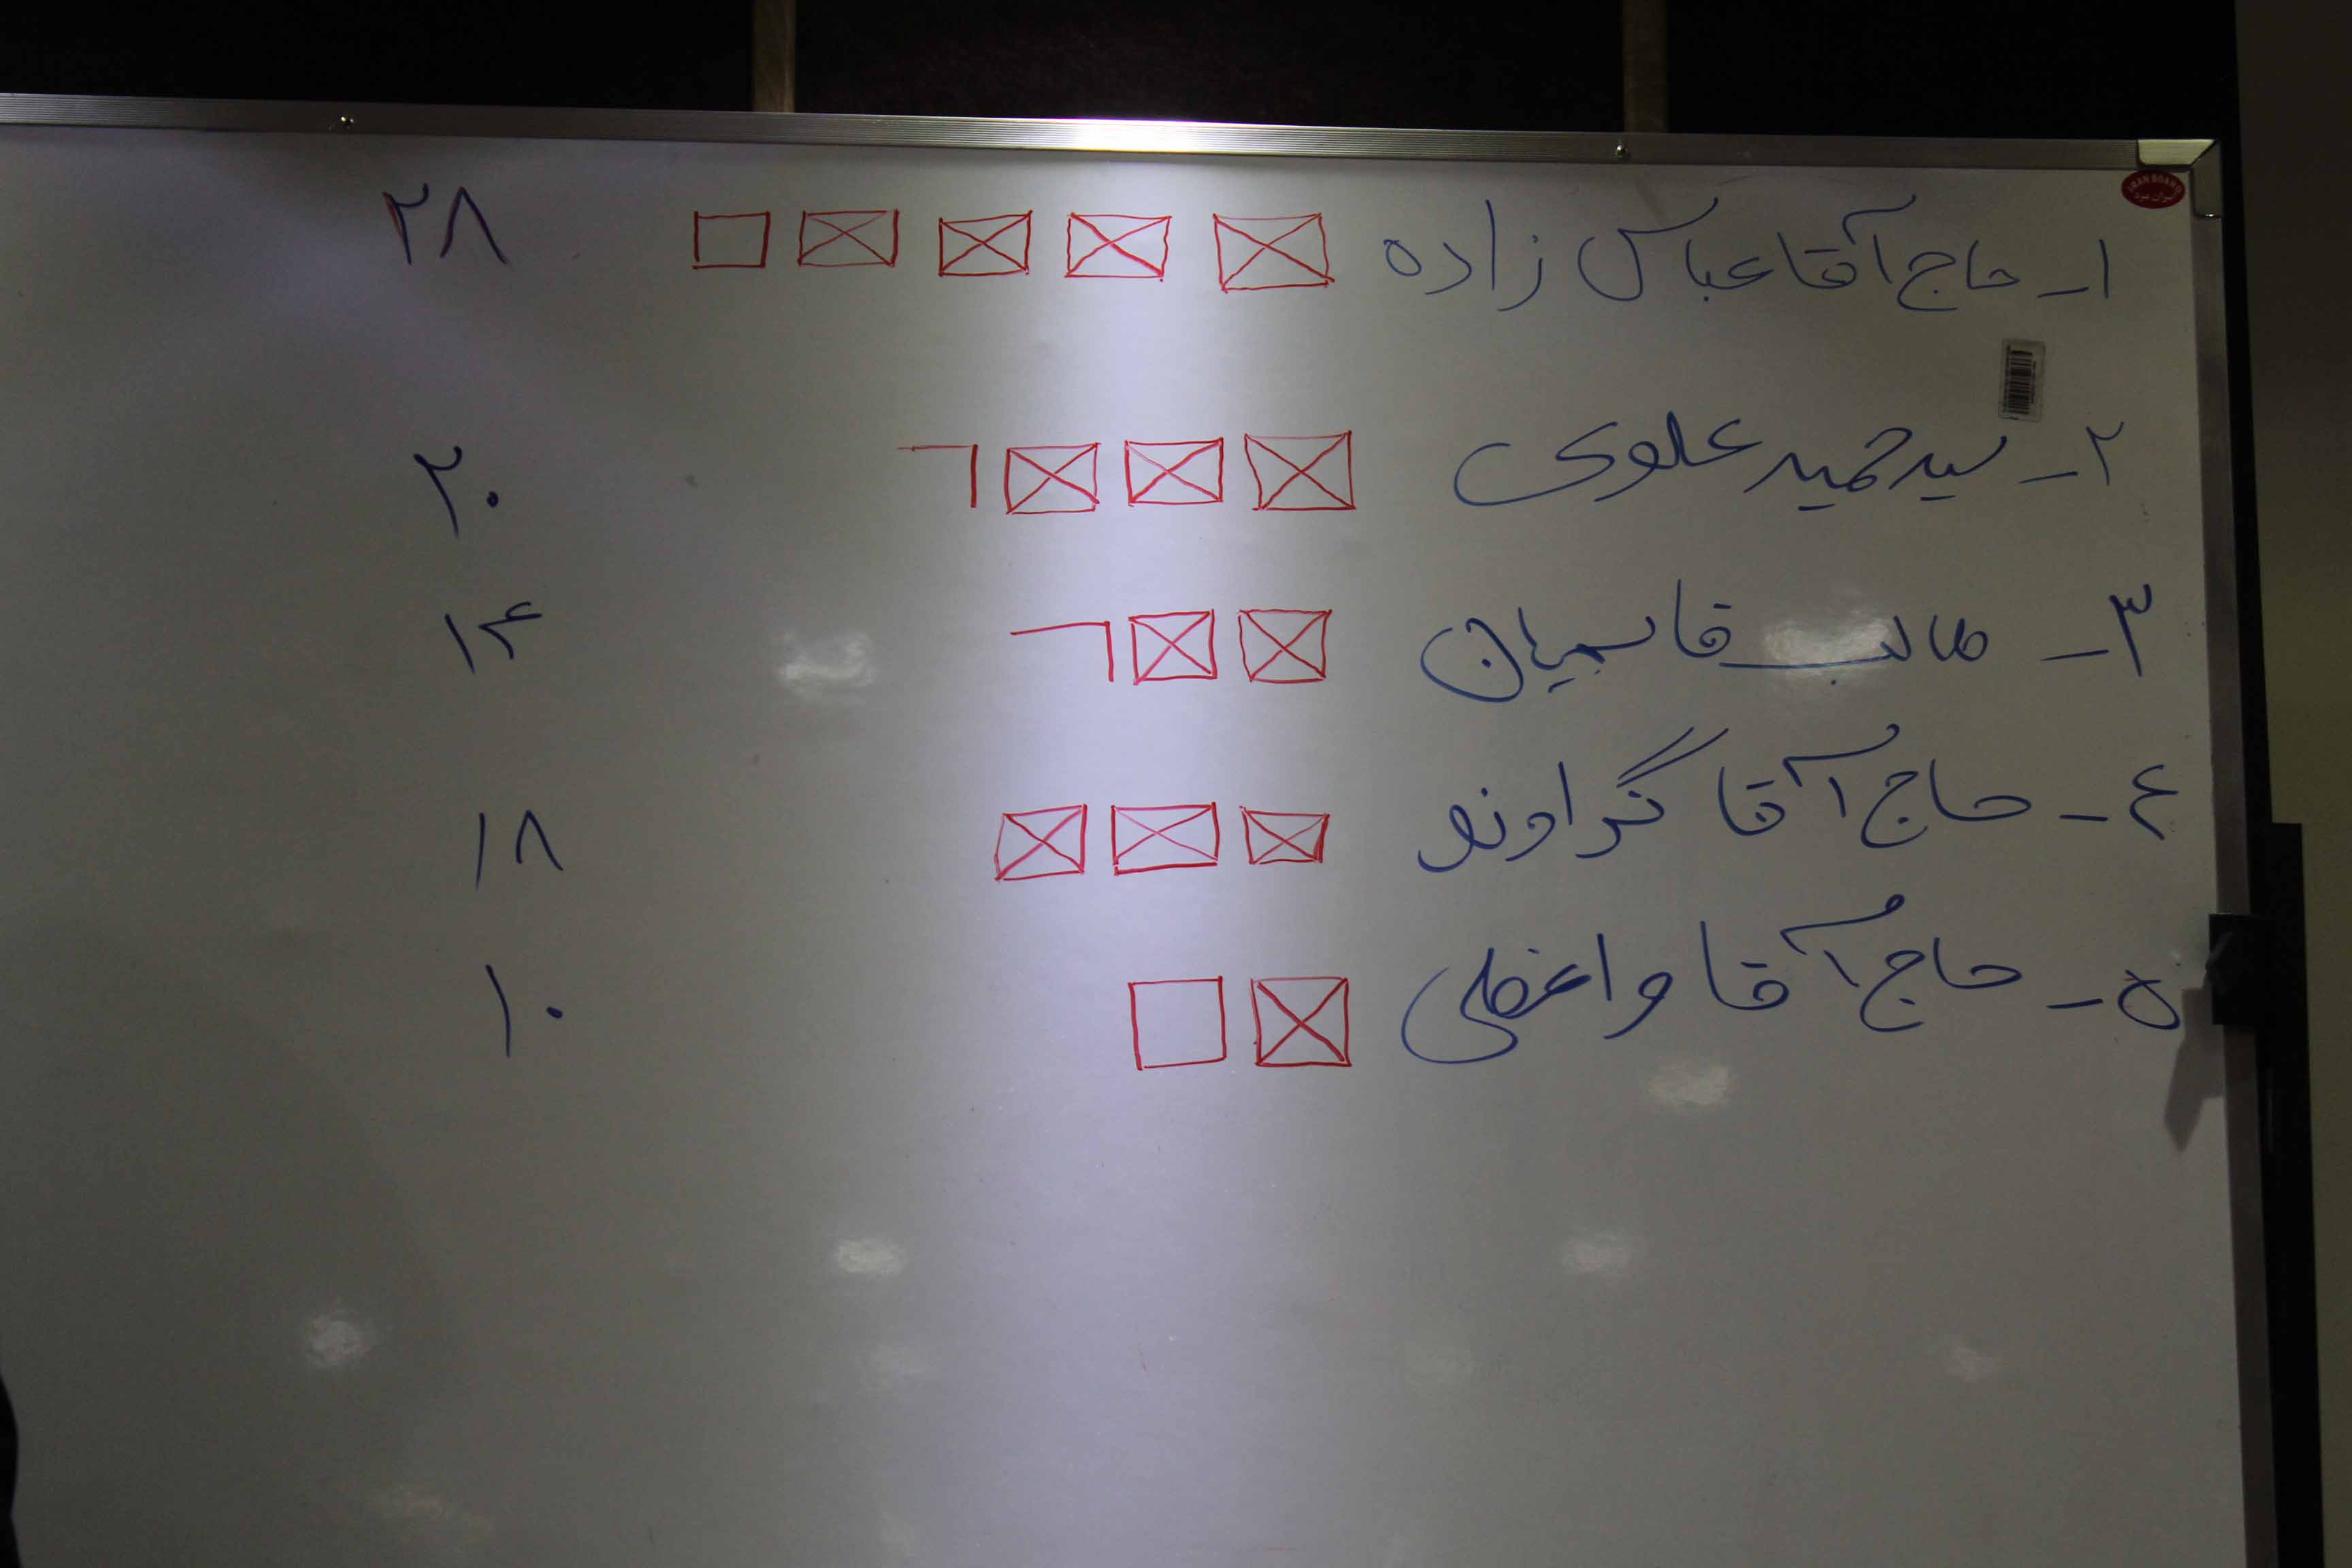 ۱- حاج آقا عباس زاده ۲۸
۲- سید حمید علوی ۲۰
۳- طالب قاسمیان ۱۴
۴- حاج آقا گراوند ۱۸
۵- حاج آقا واعظی ۱۰
IRAN BOARD